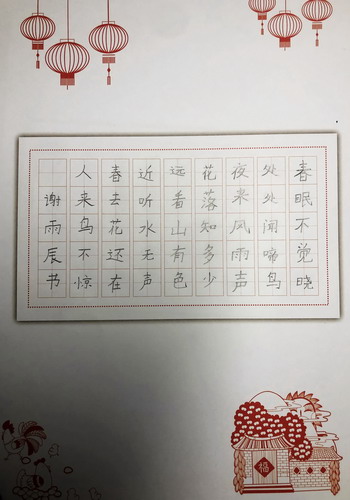 春眠不觉晓
处处闻啼鸟
夜来风雨声
花落知多少
远看山有色
近听水无声
春去花还在
人来鸟不惊
谢雨辰书
福